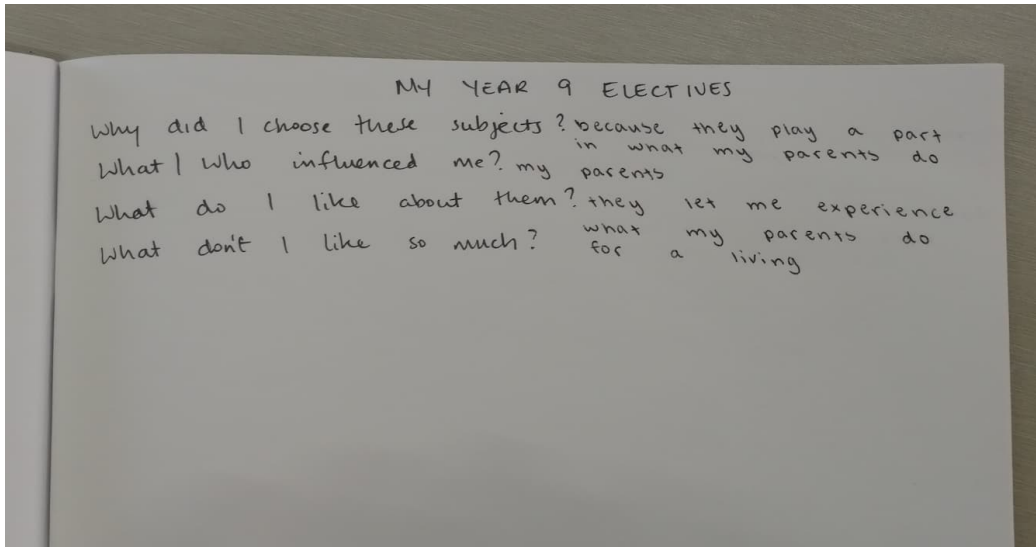 MY YEAR 9 ELECTIVES
Why did I choose these subjects? because they play a part
in what my parents do
What / Who influenced me? my parents
What do I like about them? they let me experience
what my parents do
What don't I like so much?
for a living